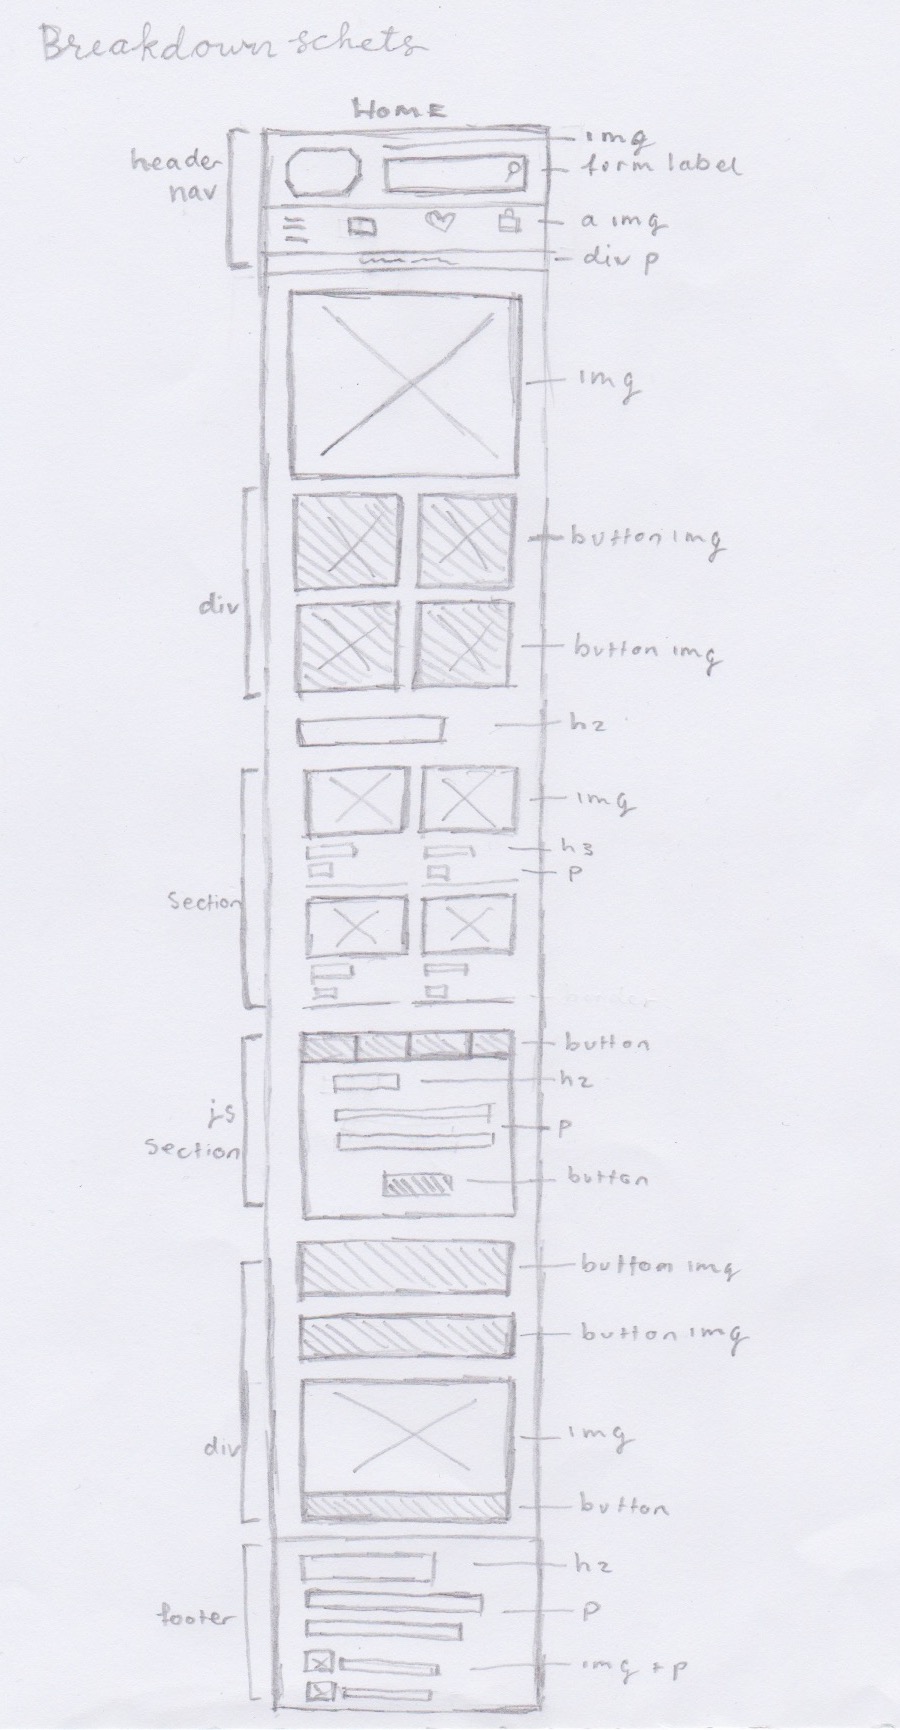 Breakdown schets
HOME
header
nav
img
form label
a img
div p
img
div
button img
button img
h2
section
img
h3
p
js
section
button
h2
p
button
div
button img
button img
img
button
footer
h2
p
img + p